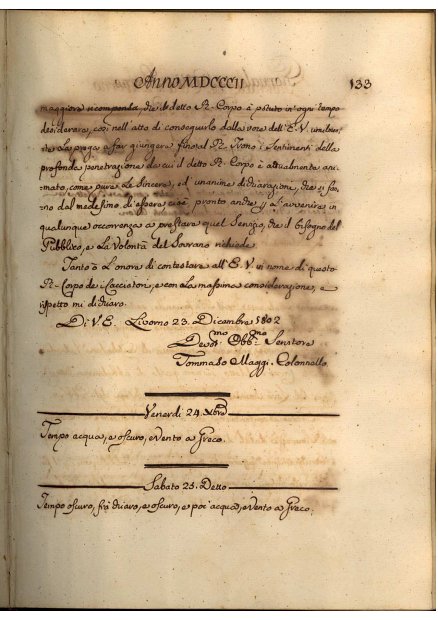 Anno MDCCCII 133
maggiore ricompensa, che il detto R. Corpo à potuto in ogni tempo
desiderare, così nell'atto di conseguirlo dalla voce dell'E.V.
te La prega a far giungere fino al R. Trono i Sentimenti della
profonda penetrazione da cui il detto R. Corpo è attualmente ani-
mato, come pure La Sincera, ed unanime dichiarazione, che si fan-
no dal medesimo d'essere cioè pronto anche p. L'avvenire in
qualunque occorrenza a prestare quel Servizio, che il bisogno del
Pubblico, e La Volontà del Sovrano richiede.
Tanto ò L'onore di contestare all'E.V. in nome di questo
R. Corpo de' Cacciatori, e con La massima considerazione, e
rispetto mi dichiaro.
Di V.E. Livorno 23. Dicembre 1802
Devot.mo Obb.mo Servitore
Tommaso Maggi. Colonnello
Venerdi 24. Xbre
Tempo acqua, e oscuro, e Vento a Greco.
Sabato 25. Detto
Tempo oscuro, frà chiaro, e oscuro, e poi acqua, e Vento a Greco.